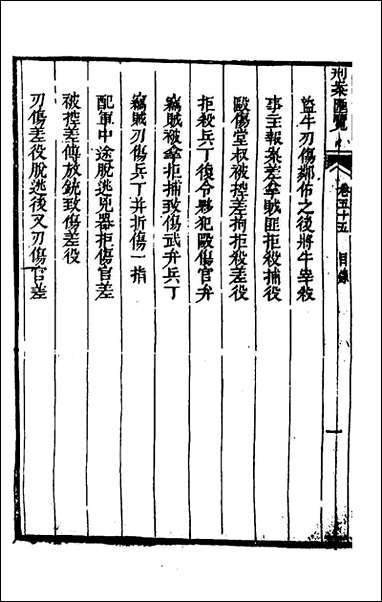 刑案匯覽 卷五十五 目錄 一
盜牛刃傷鄰佑之後將牛宰殺
事主報案差拿賊匪拒殺捕役
毆傷堂叔被控差拘拒殺差役
拒殺兵丁復令夥犯毆傷官弁
竊賊被拿拒捕致傷武弁兵丁
竊賊刃傷兵丁并折傷一指
配軍中途脫逃兇器拒傷官差
被控差傳放銃致傷差役
刃傷差役脫逃後又刃傷官差